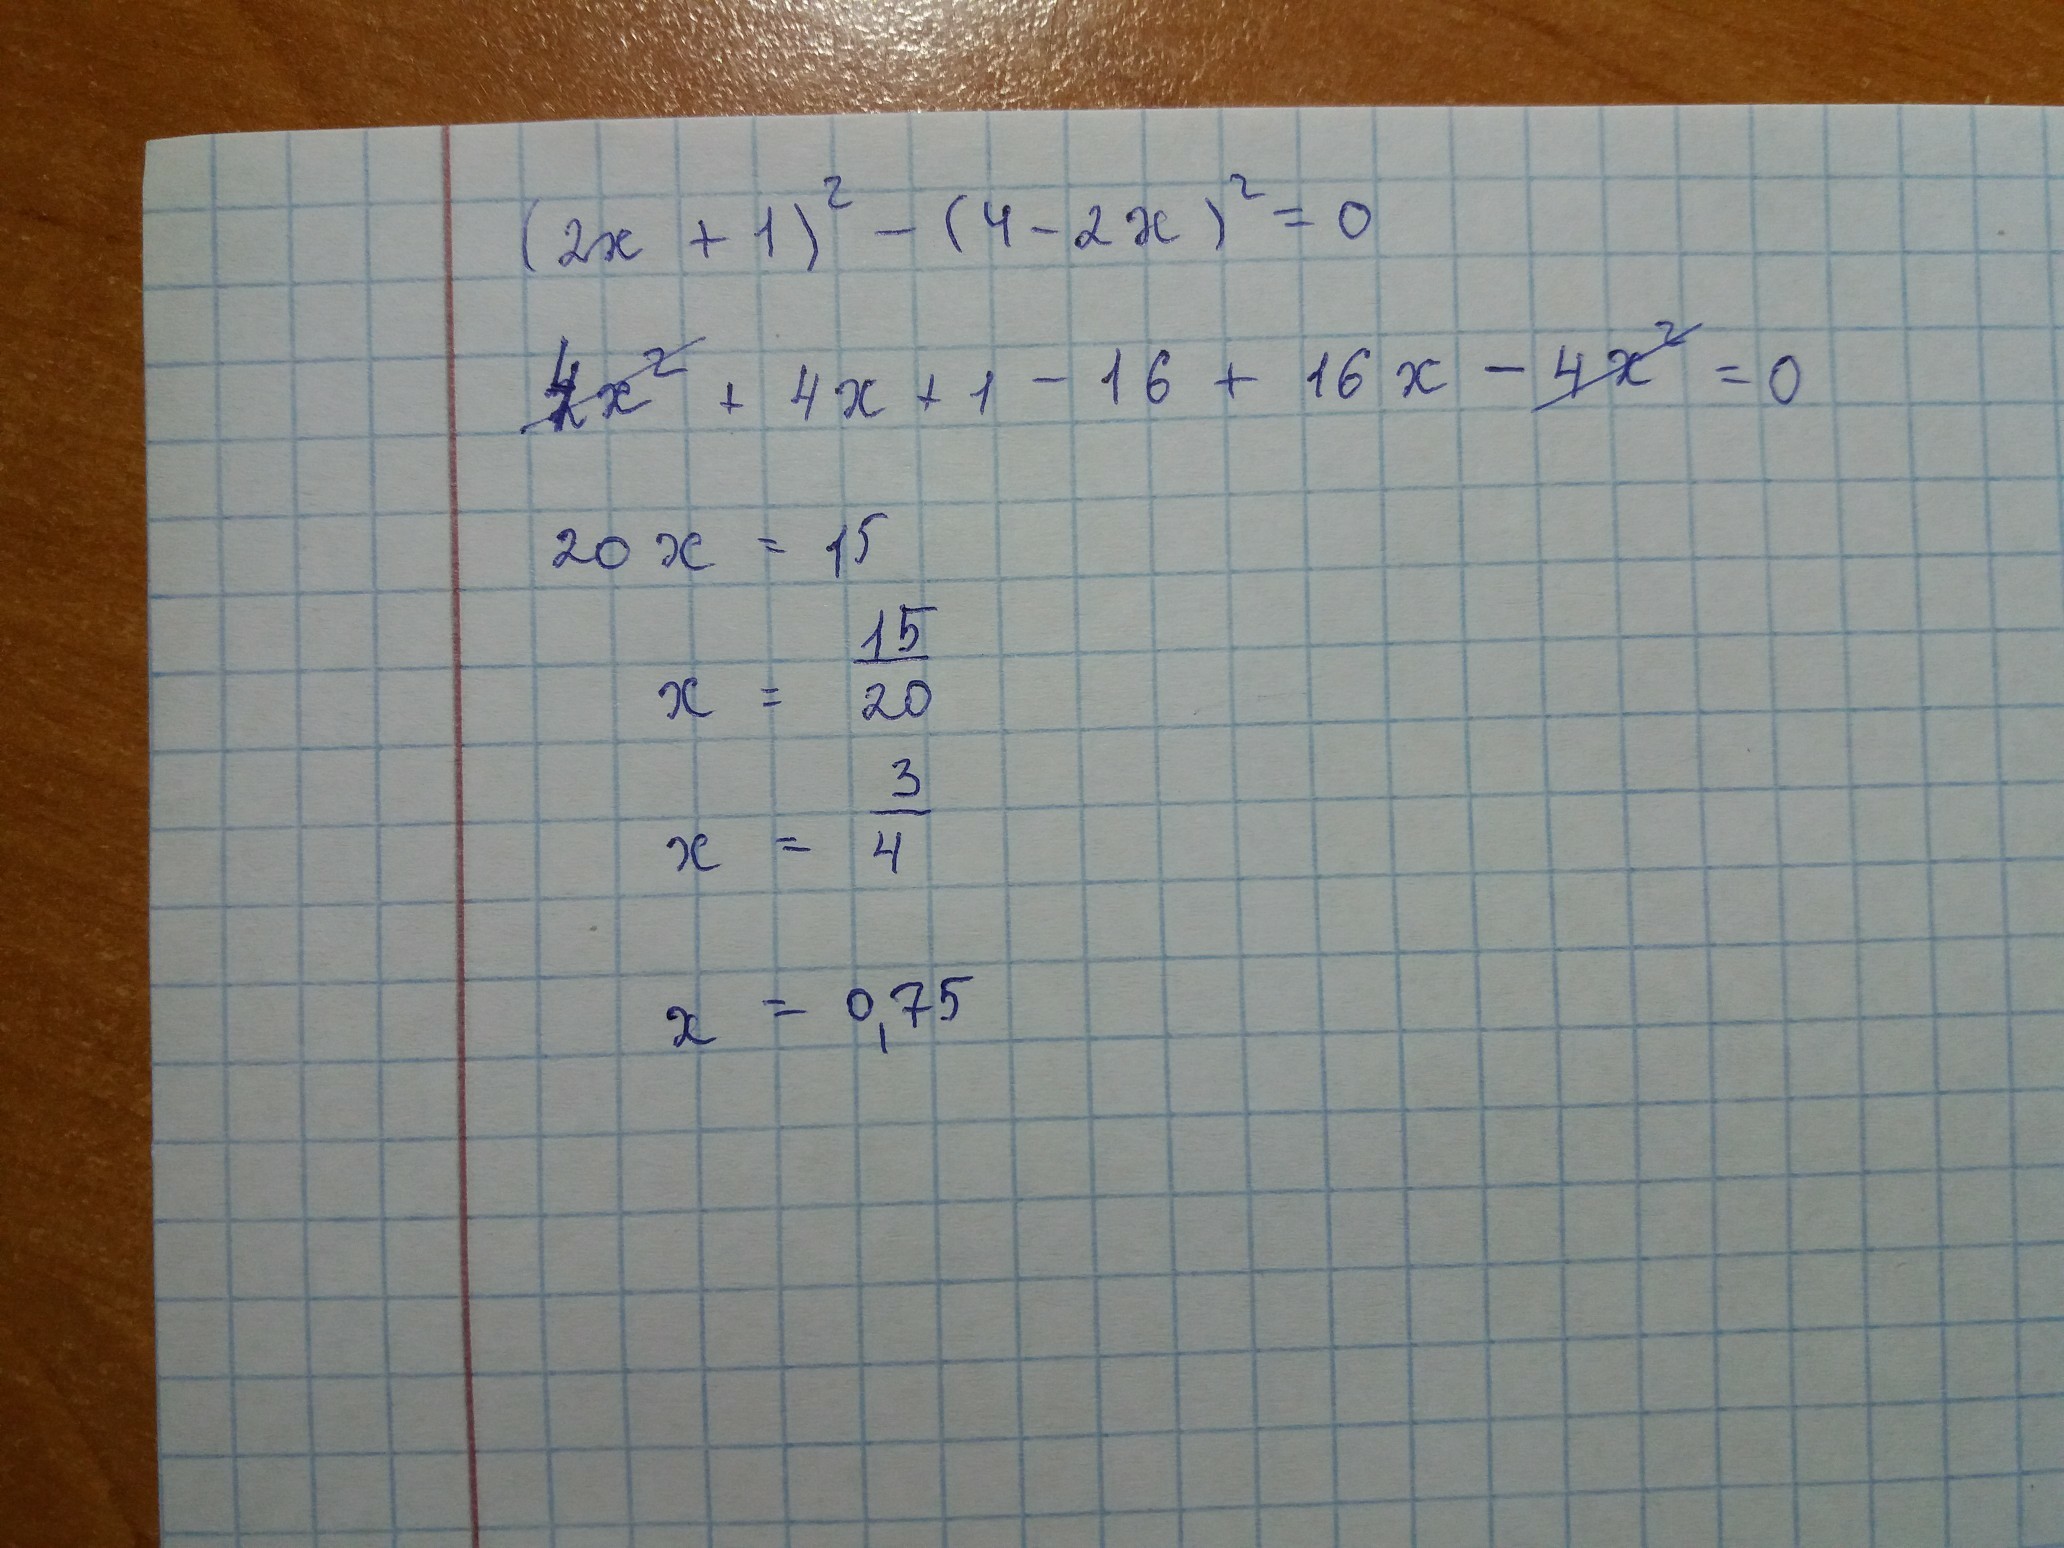 (2x + 1)² - (4 - 2x)² = 0
4x² + 4x + 1 - 16 + 16x - 4x² = 0
20x = 15
x = 15/20
x = 3/4
x = 0,75